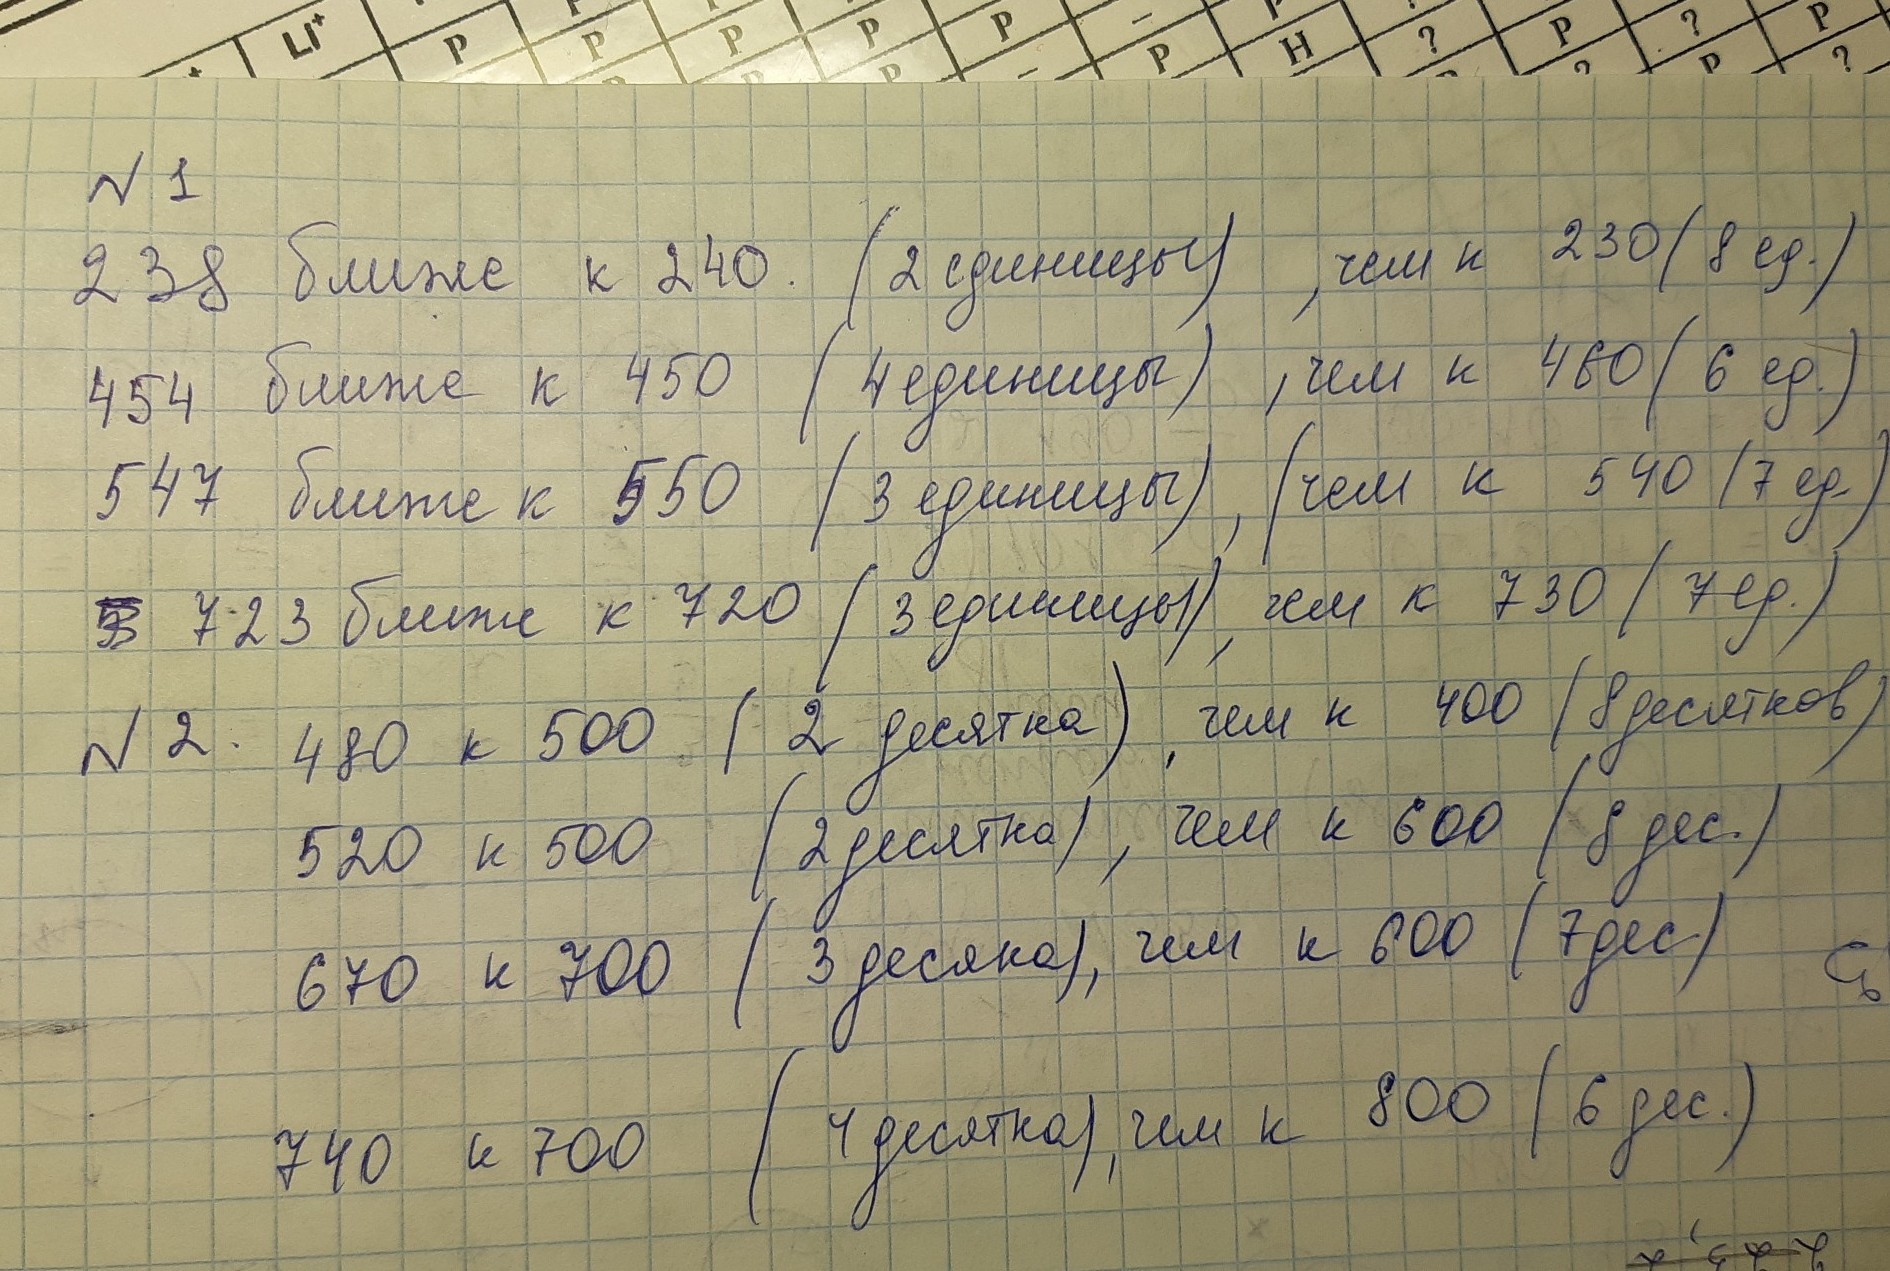 Li⁺ Р Р Р Р Р – Р Н ? Р ? Р
N 1
238 ближе к 240. (2 единицы) , чем к 230 (8 ед.)
454 ближе к 450 (4 единицы) , чем к 460 (6 ед.)
547 ближе к 550 (3 единицы), (чем к 540 (7 ед.)
723 ближе к 720 (3 единицы), чем к 730 (7 ед.)
N 2. 480 к 500 (2 десятка), чем к 400 (8 десятков)
520 к 500 (2 десятка), чем к 600 (8 дес.)
670 к 700 (3 десяка), чем к 600 (7 дес.)
740 к 700 (4 десятка), чем к 800 (6 дес.)